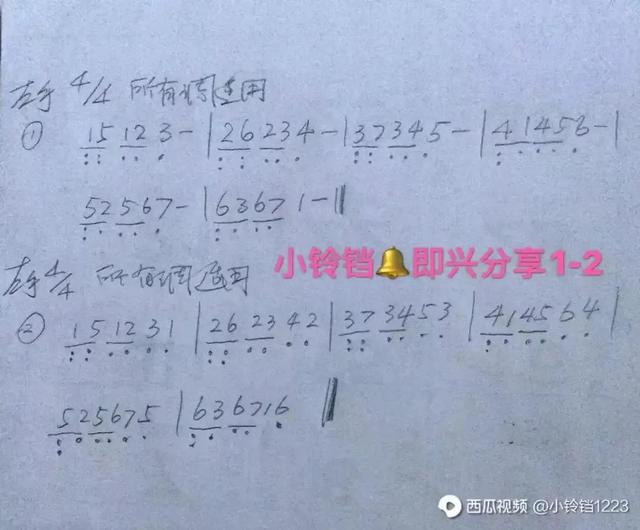 左手 4/4 所有调适用
① 15123-|26234-|37345-|41456-|
52567-|63671-‖
小铃铛🔔即兴分享1-2
左手 4/4 所有调适用
② 151231|262342|373453|414564|
525675|636716‖
西瓜视频 @小铃铛1223